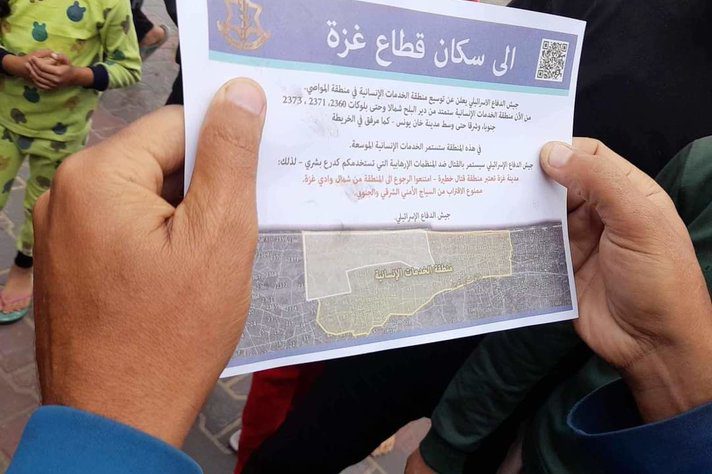 الى سكان قطاع غزة
جيش الدفاع الاسرائيلي يعلن عن توسيع منطقة الخدمات الإنسانية في منطقة المواصي.
من الآن منطقة الخدمات الإنسانية ستمتد من دير البلح شمالا وحتى بلوكات 2360، 2371، 2373
جنوبا، وشرقا حتى وسط مدينة خان يونس - كما مرفق في الخريطة
في هذه المنطقة ستستمر الخدمات الإنسانية الموسعة.
جيش الدفاع الإسرائيلي سيستمر بالقتال ضد المنظمات الإرهابية التي تستخدمكم كدرع بشري - لذلك:
مدينة غزة تعتبر منطقة قتال خطيرة - امتنعوا الرجوع الى المنطقة من شمال وادي غزة.
ممنوع الاقتراب من السياج الأمني الشرقي والجنوبي.
جيش الدفاع الإسرائيلي
منطقة الخدمات الإنسانية